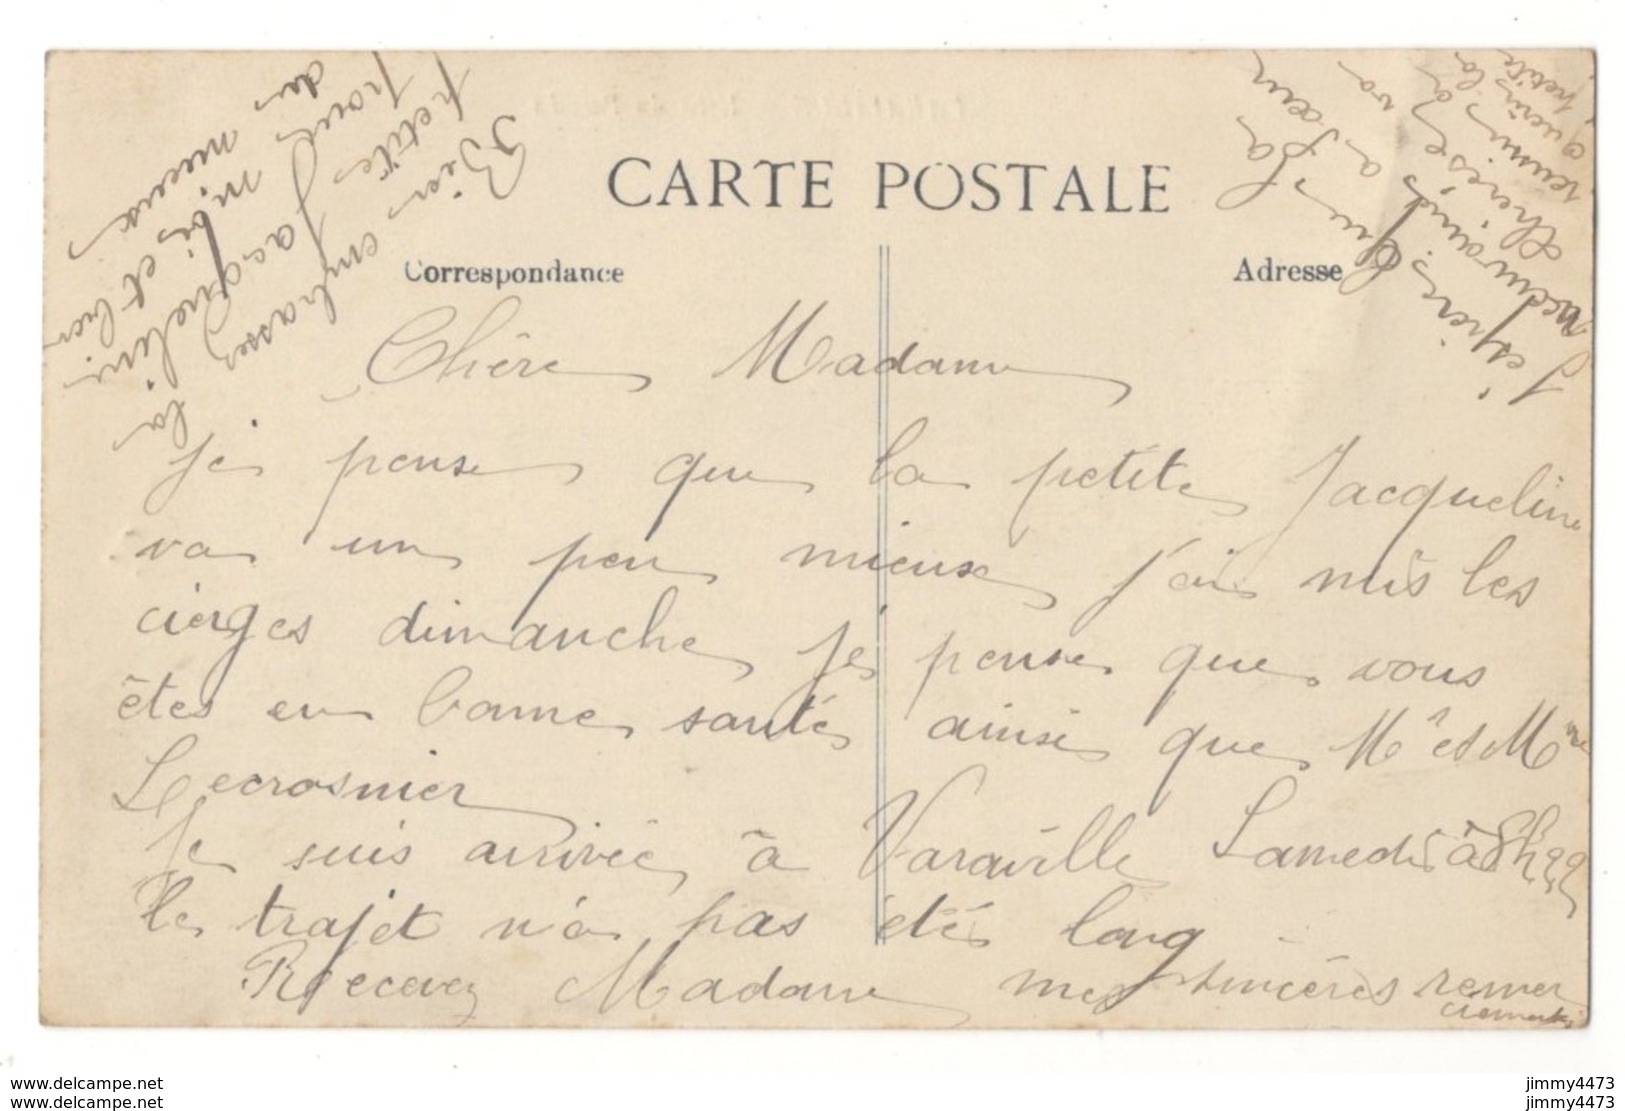 CARTE POSTALE
Correspondance
Adresse
Chère Madame
je pense que la petite Jacqueline
va un peu mieux j'ai mis les
cierges dimanche je pense que vous
êtes en bonne santé ainsi que Mr et Mme
Lecrosnier
Je suis arrivée à Varaville Samedi à 8h 22
le trajet n'a pas été long
Recevez Madame mes sincères remer
ciements
Bien embrassez la
petite Jacqueline
pour m
et bien
du mieux
J'espère que
Thérèse
réunis
petite
la
qui va
a sa
Sa sœur
www.delcampe.net
www.delcampe.net
jimmy4473
jimmy4473